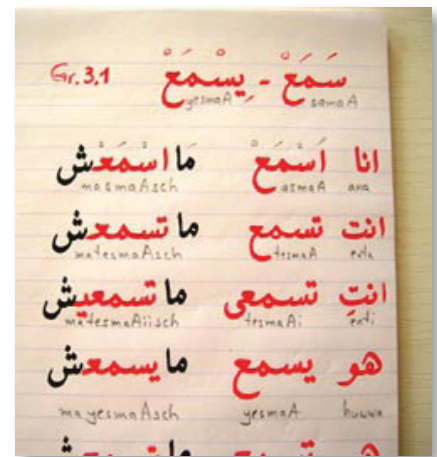 Gr. 3.1 سَمَعْ - يِسْمَعْ
yesmaA samaA
انا اَسْمَعْ مَا اسْمَعْش
ana asmaA masmaAsch
انت تسمع ما تسمعش
enta tesmaA matesmaAsch
انتِ تسمعى ما تسمعيش
enti tesmaAi matesmaAiisch
هو يسمع ما يسمعش
huwwa yesmaA mayesmaAsch